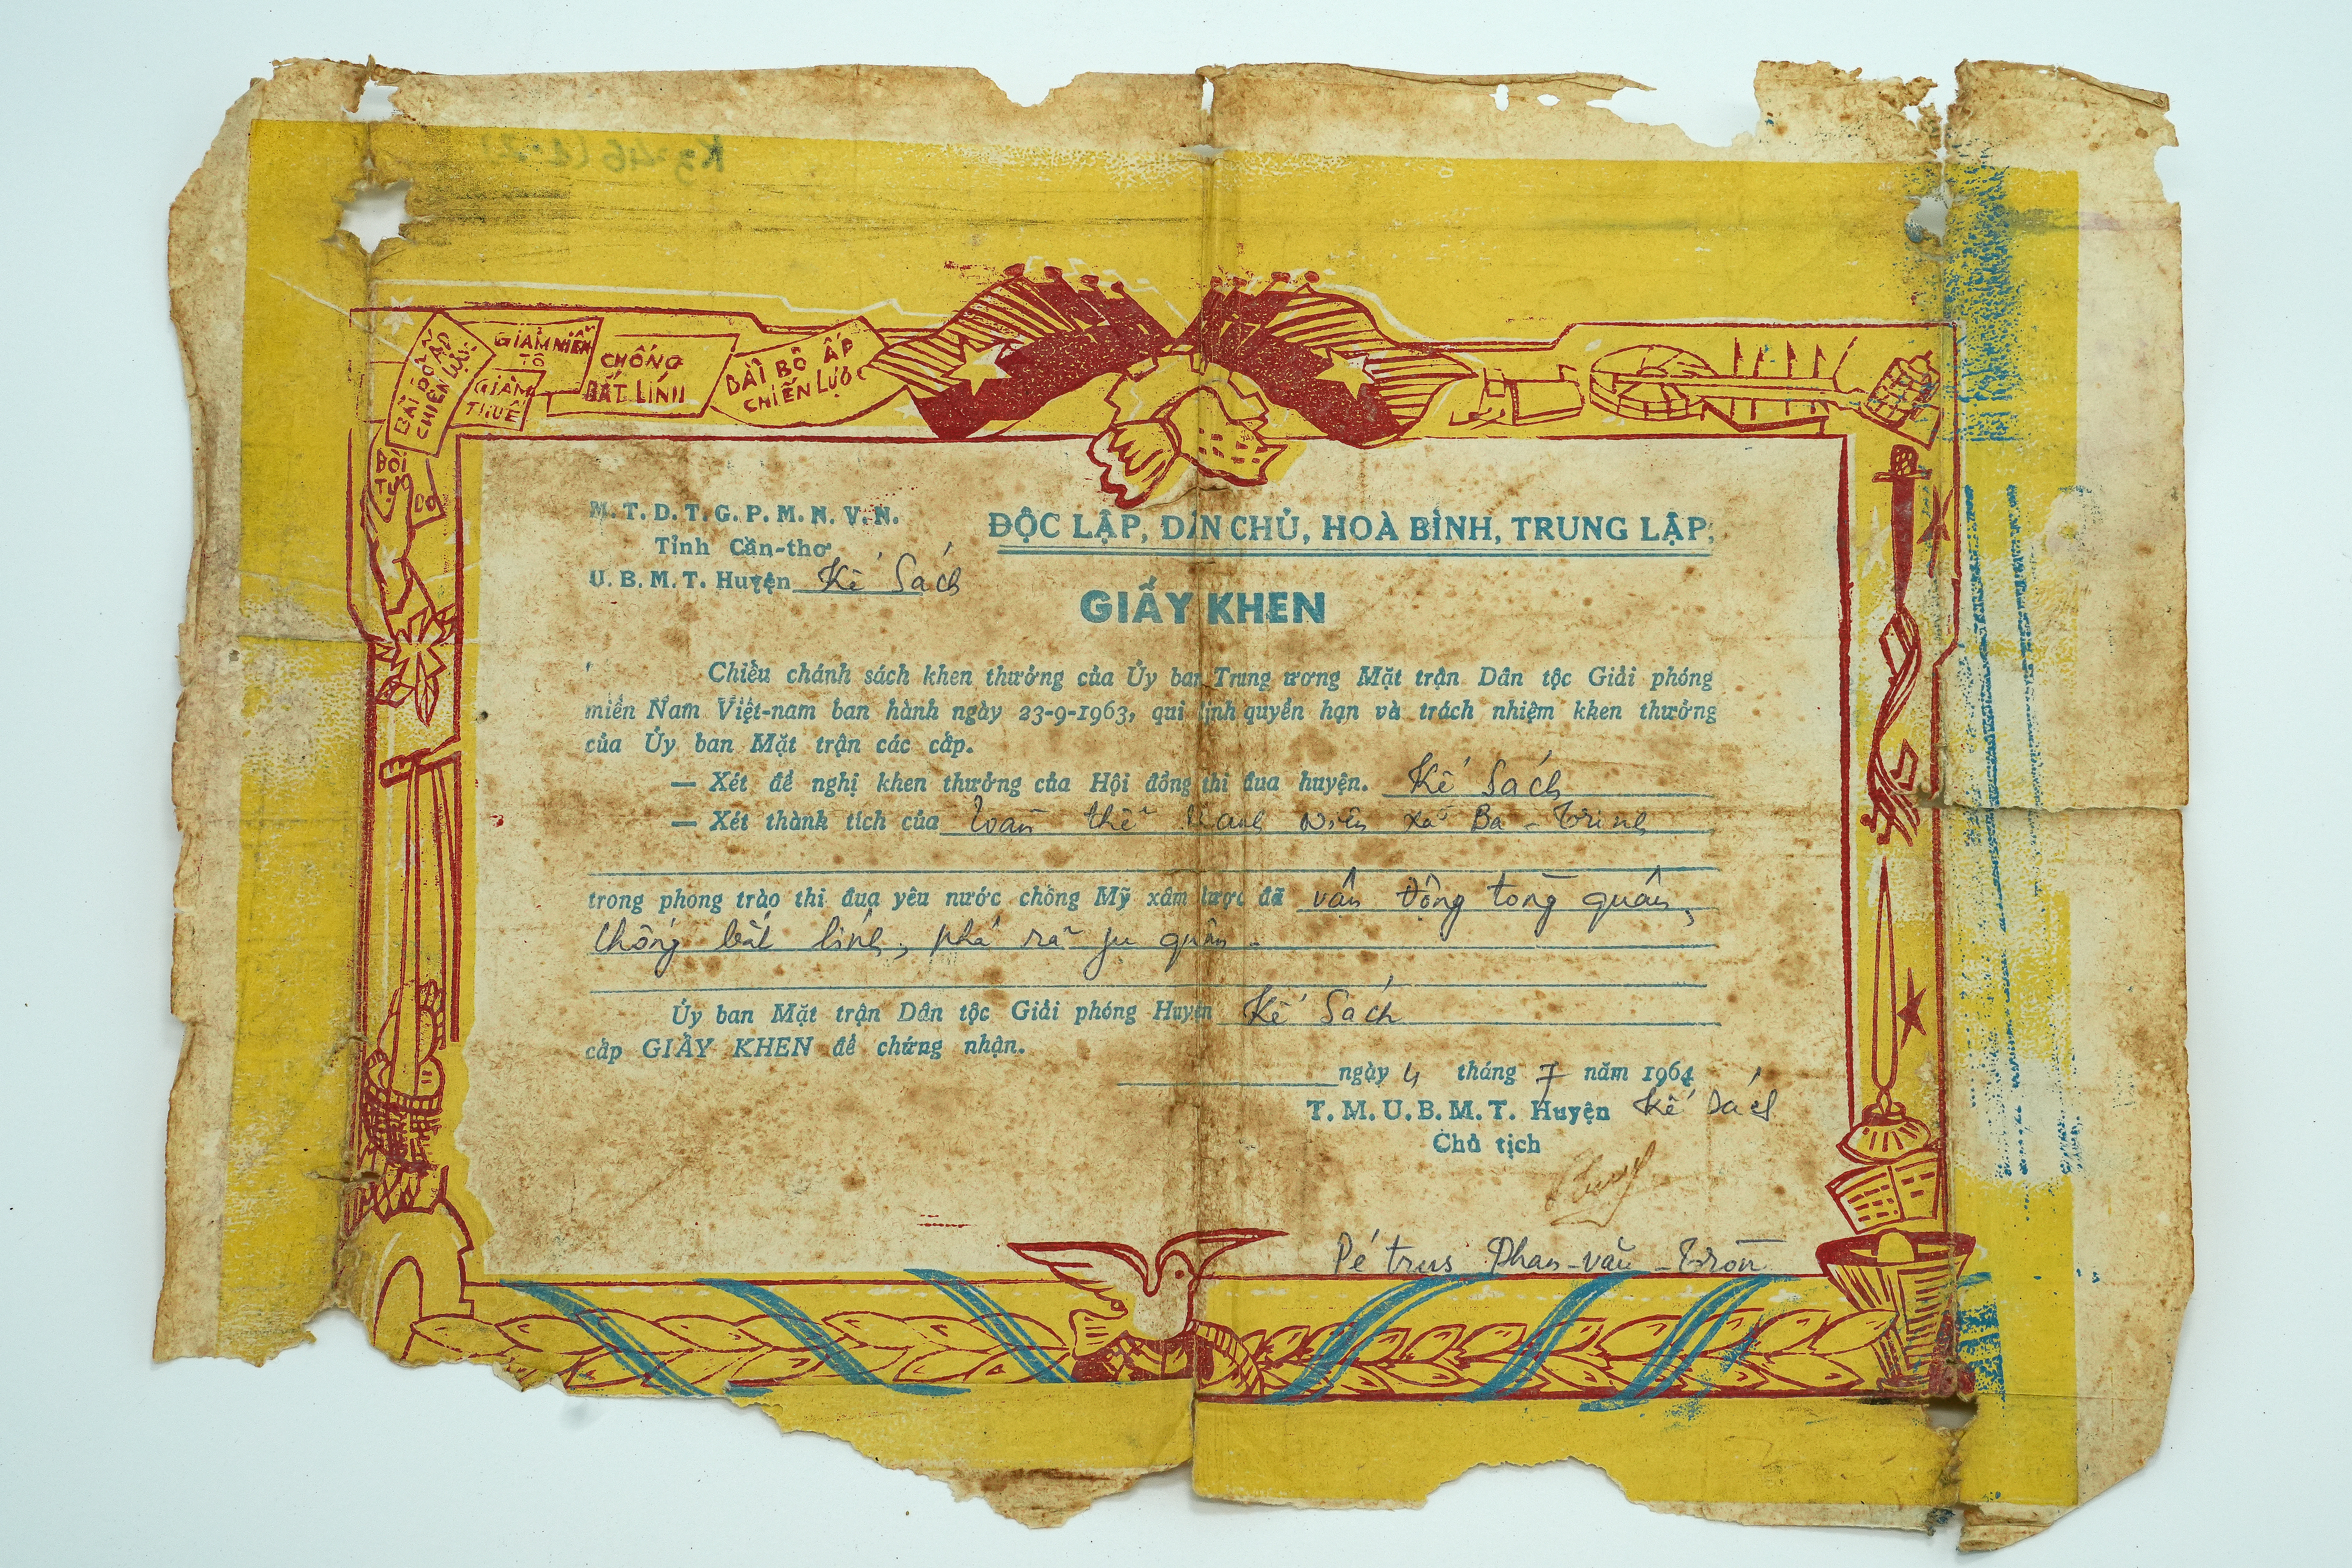 BÀI BỎ ẤP
CHIẾN LƯỢC
GIẢM
TÔ
GIẢM
THUẾ
CHỐNG
BẮT LÍNH
BÀI BỎ ẤP
CHIẾN LƯỢC
M. T. D. T. G. P. M. N. V. N.
Tỉnh Cần-thơ
U. B. M. T. Huyện Kế Sách
ĐỘC LẬP, DÂN CHỦ, HOÀ BÌNH, TRUNG LẬP,
GIẤY KHEN
Chiếu chánh sách khen thưởng của Ủy ban Trung ương Mặt trận Dân tộc Giải phóng
miền Nam Việt-nam ban hành ngày 23-9-1963, qui định quyền hạn và trách nhiệm khen thưởng
của Ủy ban Mặt trận các cấp.
— Xét đề nghị khen thưởng của Hội đồng thi đua huyện. Kế Sách
— Xét thành tích của Toàn thể thanh niên xã Ba-Trinh
trong phong trào thi đua yêu nước chống Mỹ xâm lược đã vân động tòng quân,
chống bắt lính, phá rã ju quân.
Ủy ban Mặt trận Dân tộc Giải phóng Huyện Kế Sách
cấp GIẤY KHEN để chứng nhận.
ngày 4 tháng 7 năm 1964
T. M. U. B. M. T. Huyện Kế Sách
Chủ tịch
Pétrus Phan-văn-Tròn